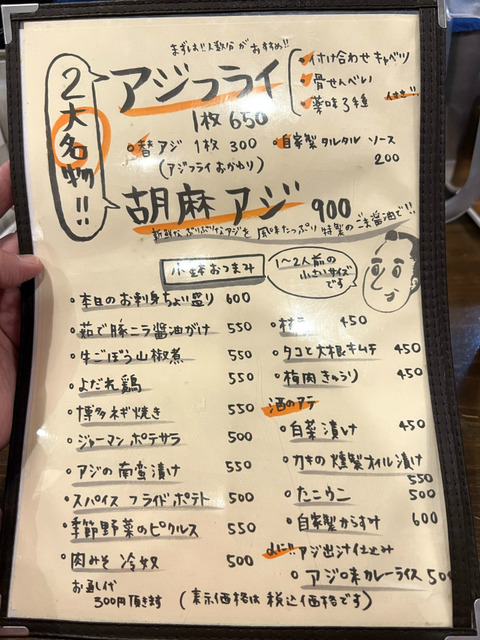 まずは!!人数分がおすすめ!!
2大名物!!
アジフライ
1枚 650
・付け合わせキャベツ
・骨せんべい
・薬味3種
・替アジ 1枚 300
(アジフライおかわり)
・自家製タルタルソース
200
胡麻アジ 900
新鮮なぷりぷりなアジを 風味たっぷり 特製のごま醤油で!!
小鉢おつまみ
1〜2人前の
小さいサイズ
です
・本日のお刺身ちょい盛り 600
・茹で豚ニラ醤油がけ 550
・牛ごぼう山椒煮 550
・よだれ鶏 550
・博多ネギ焼き 550
・ジャーマンポテサラ 500
・アジの南蛮漬け 550
・スパイスフライドポテト 500
・季節野菜のピクルス 550
・肉みそ冷奴 500
お通し代
300円頂きます
(表示価格は税込価格です)
450
・タコと大根キムチ 450
・梅肉きゅうり 450
酒のアテ
・白菜漬け 450
・カキの燻製オイル漬け
550
・たこウニ 500
・自家製からすみ 600
〆に!! アジ出汁仕込み
・アジ味カレーライス 500